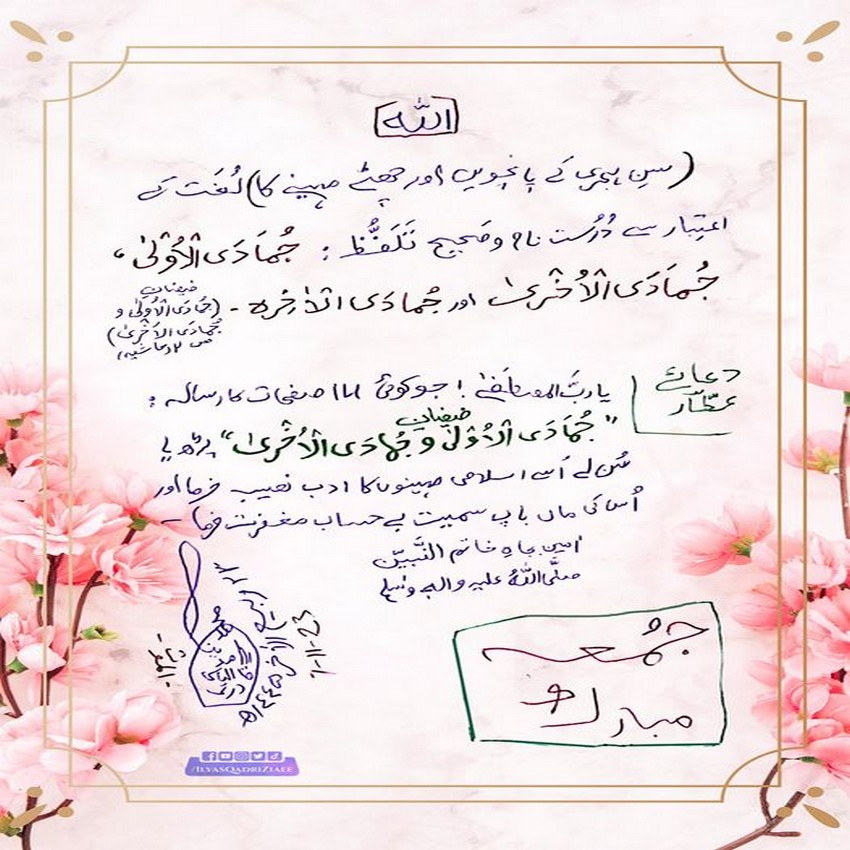 اللہ
(سنِ ہجری کے پانچویں اور چھٹے مہینے کا) لُغَت کے
اعتِبار سے دُرُست نام و صَحیح تَلَفُّظ : جُمادَی الْاُوْلٰی،
جُمادَی الْاُخْریٰ اور جُمادَی الْاٰخِرہ -
(فیضانِ
جُمادَی الْاُوْلٰی و
جُمادَی الْاُخْریٰ)
ص ۲، حاشیہ)
دعائے
عطّار
یا ربَّ المصطَفٰے! جو کوئی ۱۷ صفحات کا رسالہ :
"فیضانِ جُمَادَی الْاُوْلٰی و جُمادَی الْاُخْریٰ" پڑھ یا
سُن لے اُسے اسلامی مہینوں کا ادب نصیب فرما اور
اُس کی ماں باپ سمیت بے حساب مغفرت فرما -
اٰمین بجاہِ خاتمِ النَّبیّن
صلَّی اللہُ علیہ واٰلہٖ وسلم
جُمُعہ
مبارک
/ILYASQADRIZIAEE